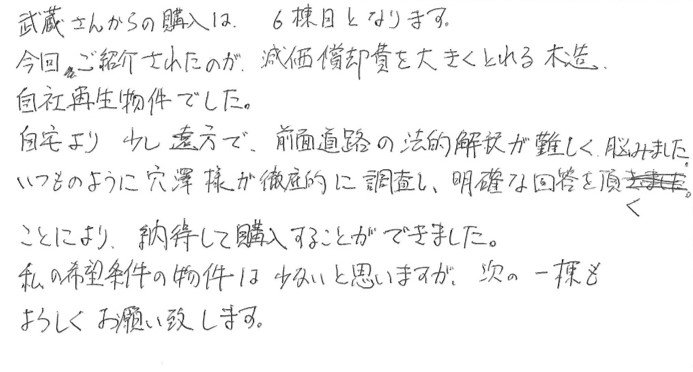 武蔵さんからの購入は、6棟目となります。
今回、ご紹介されたのが、減価償却費を大きくとれる木造、
自社再生物件でした。
自宅より少し遠方で、前面道路の法的解釈が難しく、悩みました。
いつものように穴澤様が徹底的に調査し、明確な回答を頂く
ことにより、納得して購入することができました。
私の希望条件の物件は少ないと思いますが、次の一棟も
よろしくお願い致します。